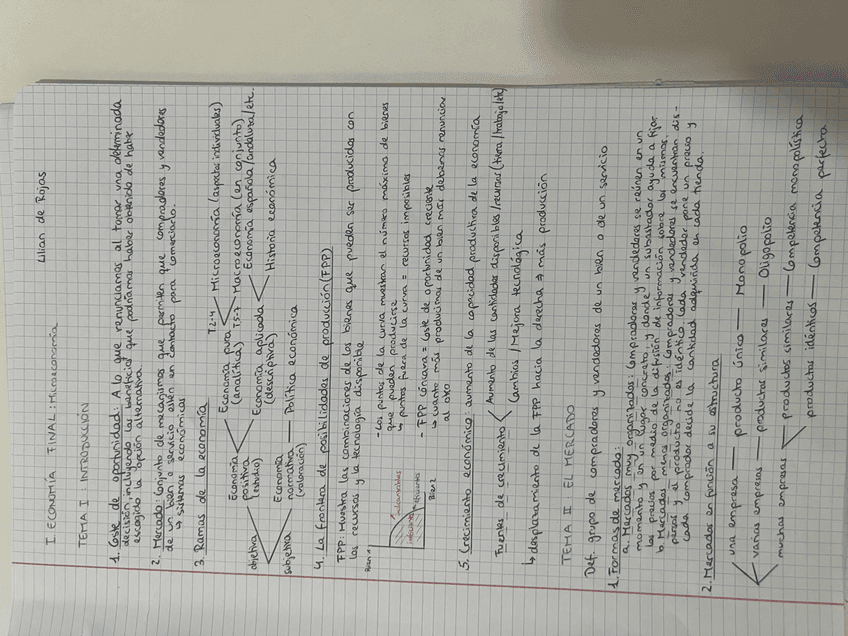 I. ECONOMÍA FINAL: Microeconomía
Lilian de Rojas
TEMA I INTRODUCCIÓN
1. Coste de oportunidad: A lo que renunciamos al tomar una determinada
decisión, incluyendo los beneficios que podríamos haber obtenido de haber
escogido la opción alternativa.
2. Mercado: Conjunto de mecanismos que permiten que compradores y vendedores
de un bien o servicio estén en contacto para comerciarlo.
↳ sistemas económicos
3. Ramas de la economía
objetiva
Economía positiva (estudio)
Economía pura (analítica)
T2-4 Microeconomía (aspectos individuales)
T5-7 Macroeconomía (en conjunto)
Economía aplicada (descriptiva)
Economía española/andaluza/etc.
Historia económica
subjetiva
Economía normativa (valoración)
Política económica
4. La frontera de posibilidades de producción (FPP)
FPP: Muestra las combinaciones de los bienes que pueden ser producidos con
los recursos y la tecnología disponible
Bien 1
Inalcanzables
Eficientes
Bien 2
- Los puntos de la curva muestran el número máximo de bienes
que pueden producirse
↳ puntos fuera de la curva = recursos imposibles
- FPP cóncava = Coste de oportunidad creciente
↳ cuanto más producimos de un bien más debemos renunciar
al otro
5. Crecimiento económico: aumento de la capacidad productiva de la economía
Fuentes de crecimiento
Aumento de las cantidades disponibles/recursos (tierra/trabajo/etc)
Cambios/Mejora tecnológica
↳ desplazamiento de la FPP hacia la derecha → más producción
TEMA II EL MERCADO
Def: grupo de compradores y vendedores de un bien o de un servicio
1. Formas de mercado:
a. Mercados muy organizados: Compradores y vendedores se reúnen en un
momento y en un lugar concreto, y donde un subastador ayuda a fijar
los precios por medio de la difusión de información sobre los mismos.
b. Mercados menos organizados: Compradores y vendedores se encuentran dis-
persos y el producto no es idéntico. Cada vendedor pone un precio y
cada comprador decide la cantidad adquirida en cada tienda.
2. Mercados en función a su estructura
una empresa — producto único — Monopolio
varias empresas — productos similares — Oligopolio
muchas empresas
productos similares — Competencia monopolística
productos idénticos — Competencia perfecta